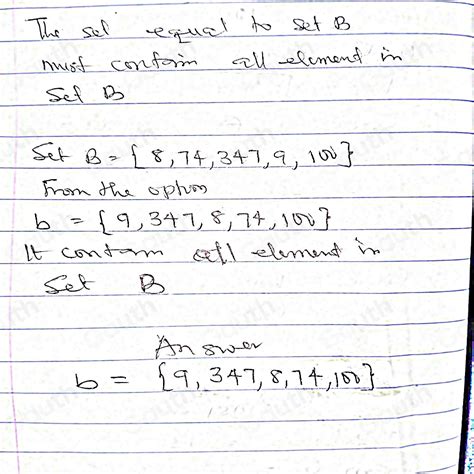 The set equal to set B
must contain all element in
Set B
Set B = { 8, 74, 347, 9, 100 }
From the option
b = { 9, 347, 8, 74, 100 }
It contain all element in
Set B
Answer
b = { 9, 347, 8, 74, 100 }